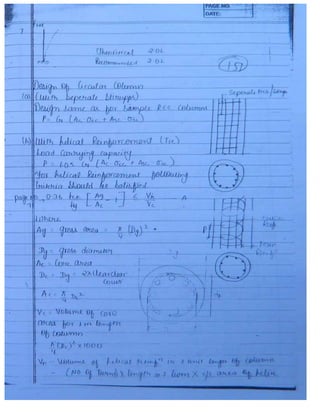 PAGE NO.
DATE:
Theoretical 2.0L
Recommended 2.0L
157
Design of Circular Column
(a) (with Seperate Stirrups)
Seperate ties/
Design same as per Sample RCC Column
P = Cr (Ac σcc + Asc σsc)
(b) With helical Reinforcement (Tie)
Load Carrying capacity
P = 1.05 Cr (Ac σcc + Asc σsc)
For helical Reinforcement following
Criteria should be satisfied
0.36 [Ag/Ac - 1] ≤ Vh/Vc
Where
Ag = gross area = π/4 (Dg)² =
Dg = gross diameter
Ac = Core area
Dc = Dg - 2 x Clear cover
Ac = π/4 Dc²
Vc = Volume of core
area for 1m length
of column
π/4 (Dc)² x 1000
Vh - Volume of helical Reinf^n in 1 unit length of column
= (No. of Turns x length in 1 turn) x c/s area of helix